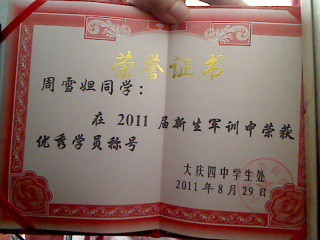 荣誉证书
周雪妲同学：
在 2011 届新生军训中荣获
优秀学员称号
大庆四中学生处
2011年8月29日